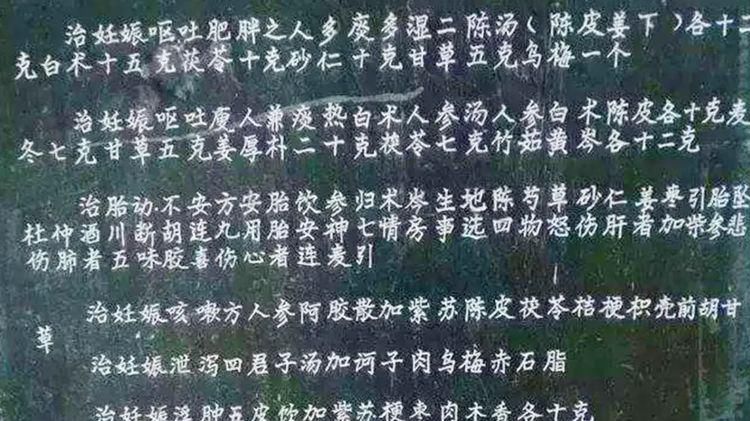 治妊娠呕吐肥胖之人多痰多湿二陈汤(陈皮姜下)各十二
克白术十五克茯苓十克砂仁十克甘草五克乌梅一个
治妊娠呕吐瘦人兼痰热白术人参汤人参白术陈皮各十克麦
冬七克甘草五克姜厚朴二十克茯苓七克竹茹黄岑各十二克
治胎动不安方安胎饮参归术岑生地陈芍草砂仁姜枣引胎坠
杜仲酒川断胡连九用胎安神七情房事选四物怒伤肝者加柴参悲
伤肺者五味胶喜伤心者连麦引
治妊娠咳嗽方人参阿胶散加紫苏陈皮茯苓桔梗枳壳前胡甘
草
治妊娠泄泻四君子汤加诃子肉乌梅赤石脂
治妊娠浮肿五皮饮加紫苏梗枣肉木香各十克